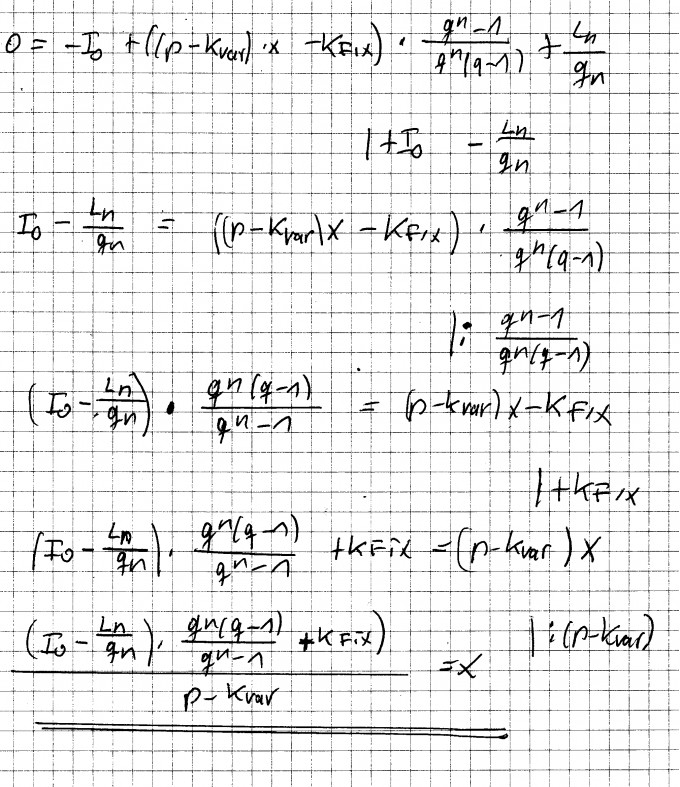 0 = -I₀ + ((p - Kvar) · x - KFix) · (qⁿ-1)/(qⁿ(q-1)) + Ln/qn
| + I₀ - Ln/qn
I₀ - Ln/qn = ((p - Kvar)x - KFix) · (qⁿ-1)/(qⁿ(q-1))
| : (qⁿ-1)/(qⁿ(q-1))
(I₀ - Ln/qn) · (qⁿ(q-1))/(qⁿ-1) = (p - Kvar)x - KFix
| + KFix
(I₀ - Ln/qn) · (qⁿ(q-1))/(qⁿ-1) + KFix = (p - Kvar)x
| : (p - Kvar)
((I₀ - Ln/qn) · (qⁿ(q-1))/(qⁿ-1) + KFix)/(p - Kvar) = x